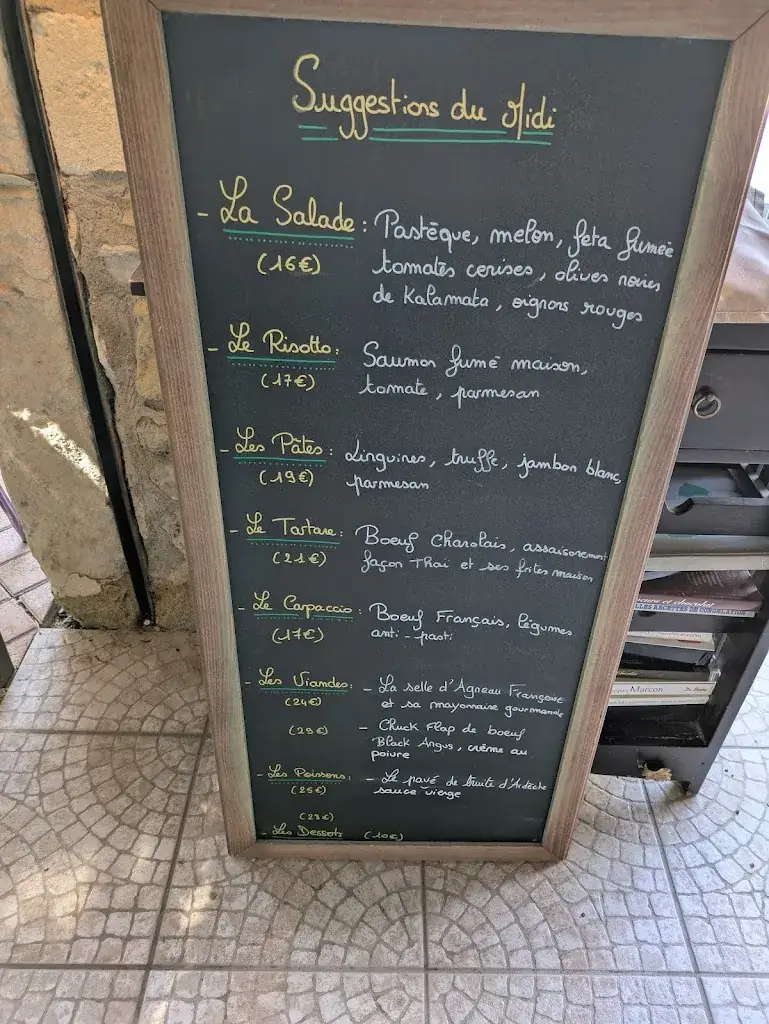 Suggestions du Midi
- La Salade : Pastèque, melon, feta fumée
(16€) tomates cerises, olives noires
de Kalamata, oignons rouges
- Le Risotto : Saumon fumé maison,
(17€) tomate, parmesan
- Les Pâtes : Linguines, truffe, jambon blanc,
(19€) parmesan
- Le Tartare : Boeuf Charolais, assaisonnement
(21€) façon Thaï et ses frites maison
- Le Carpaccio : Boeuf Français, légumes
(17€) anti-pasti
- Les Viandes : - La selle d'Agneau Française
(24€) et sa mayonnaise gourmande
(29€) - Chuck Flap de boeuf
Black Angus, crème au
poivre
- Les Poissons : - Le pavé de truite d'Ardèche
(25€) sauce vierge
(23€)
- Les Desserts (10€)
LES RECETTES DE CONGELATION
Marcon